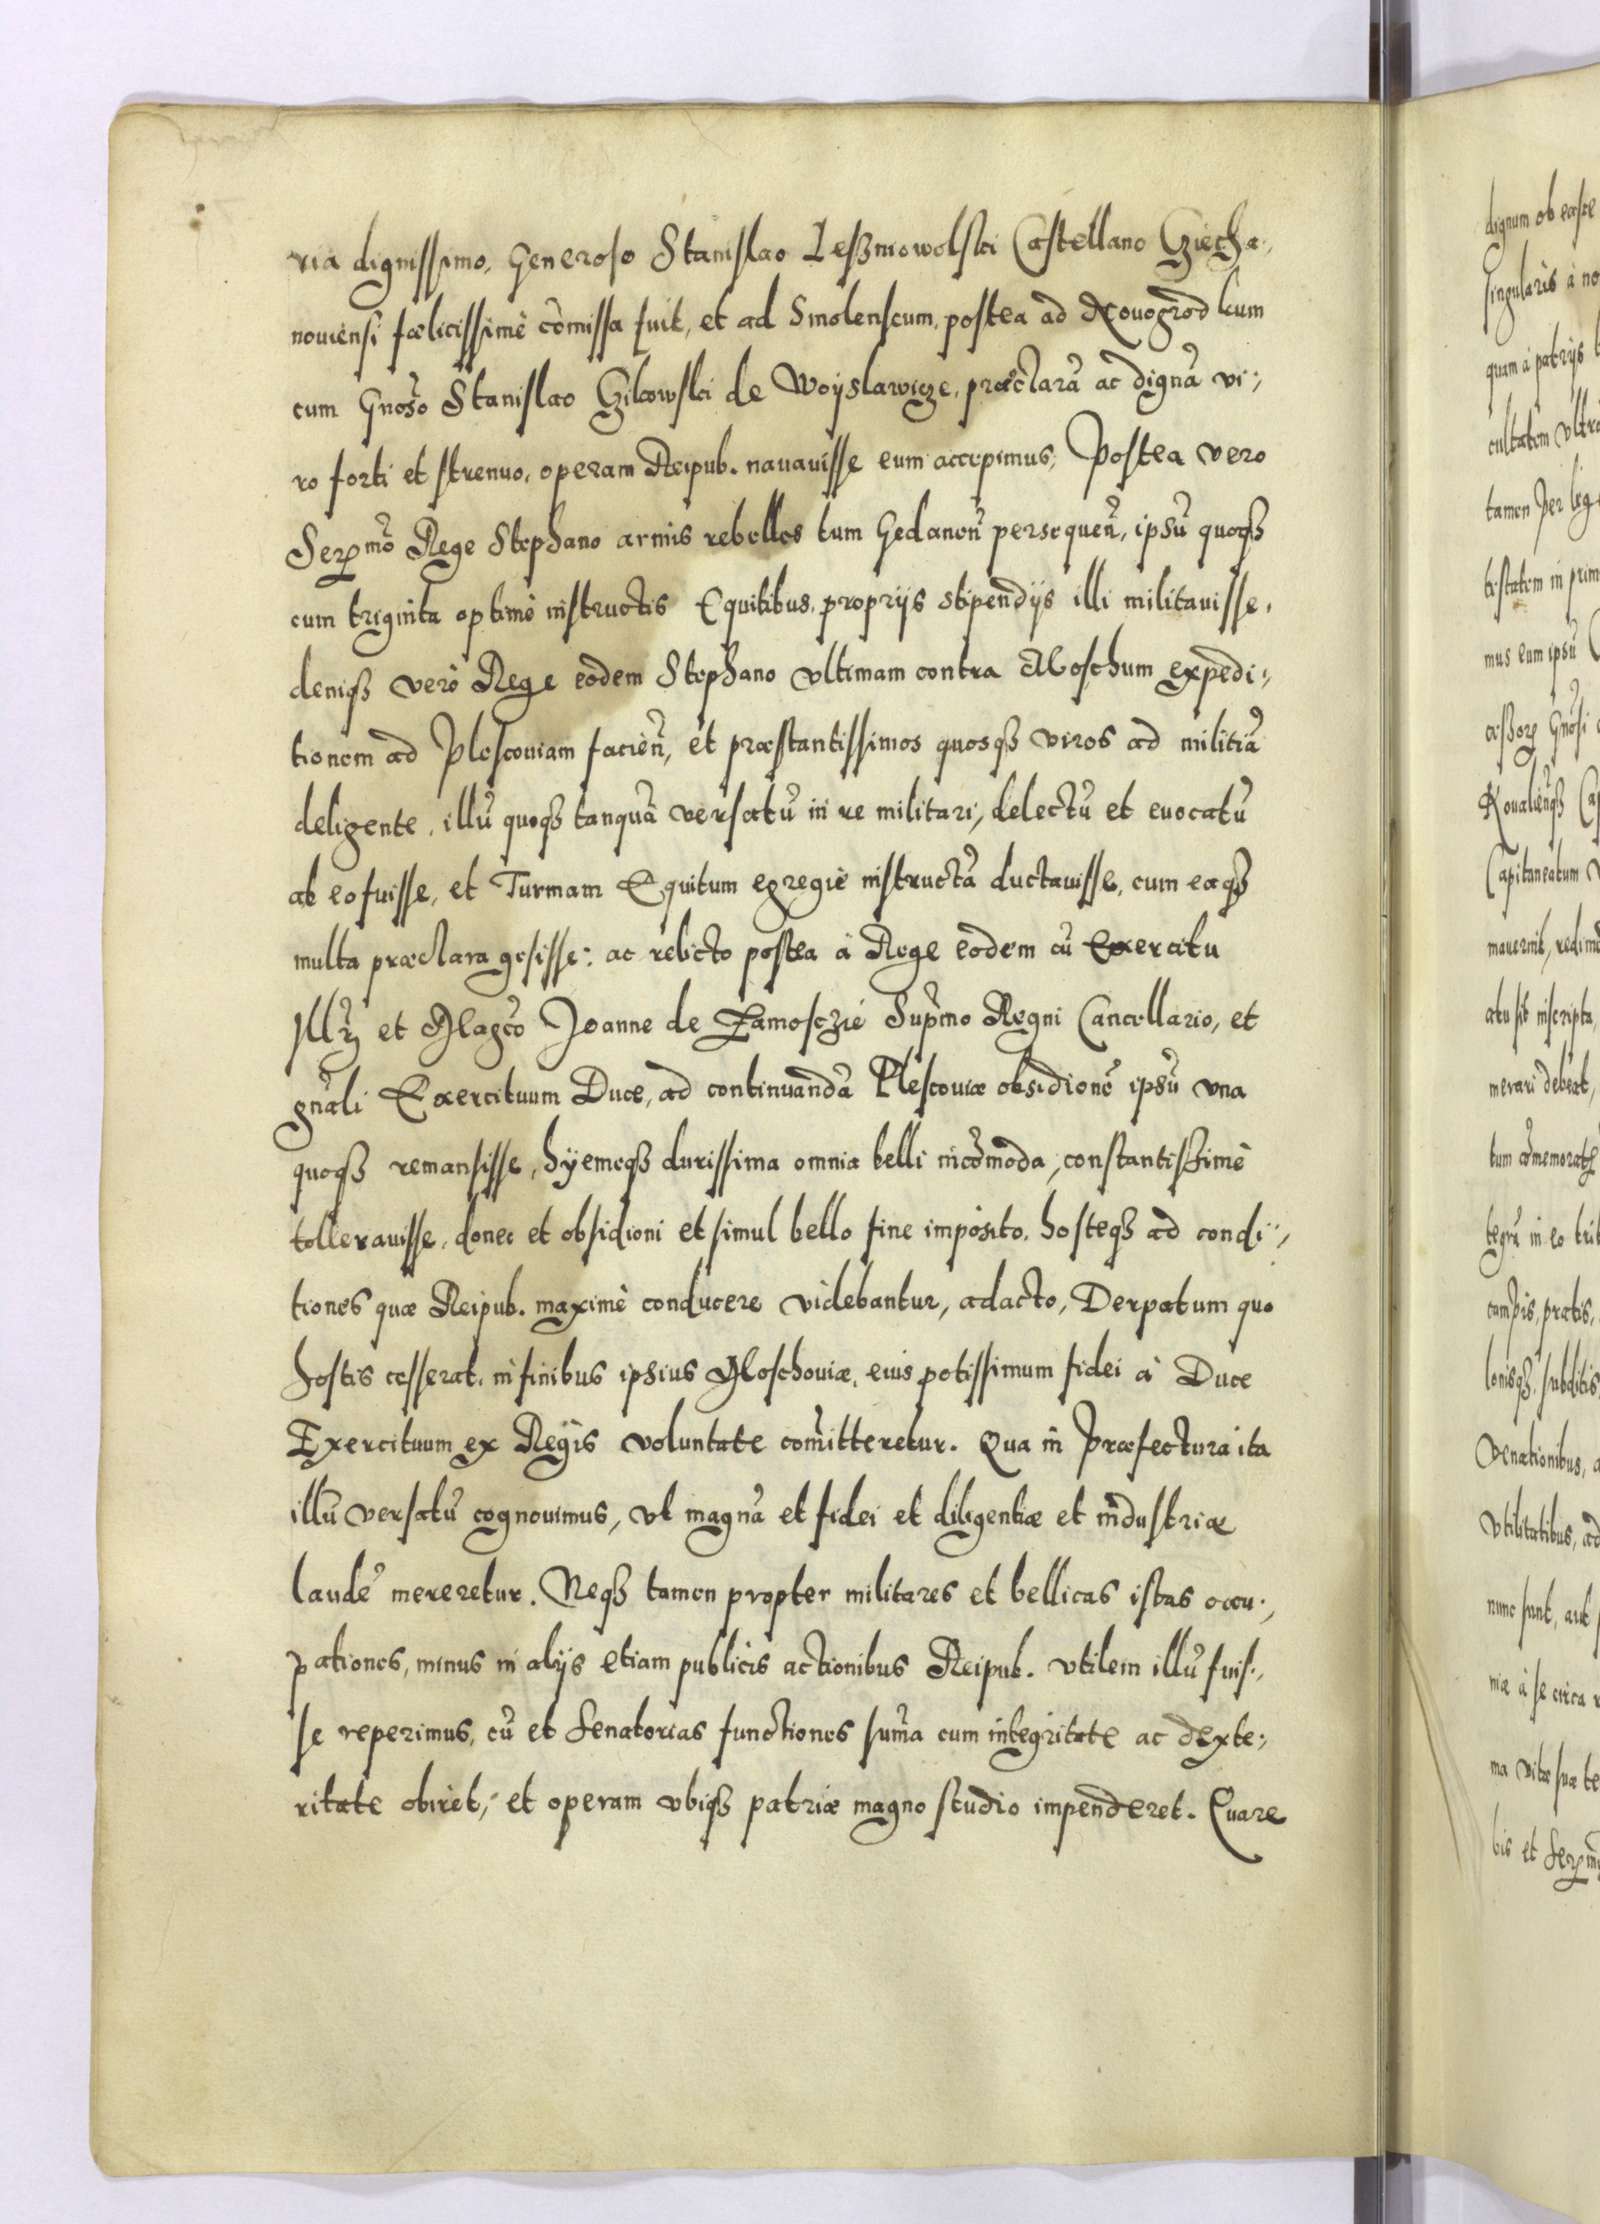 ria dignissimo, Generoso Stanislao Leßniowolski Castellano Cziecha-
nouiensi fælicissimè cõmissa fuit, et ad Smolenscum, postea ad Nouogrod kum
cum Gnoso Stanislao Gilowski de Woyslawicze, præclarã ac dignã vi-
ro forti et strenuo, operam Reipub. nauauisse eum accepimus, Postea vero
Sermo Rege Stephano armis rebelles tum Gedaneñ persequeñ, ipsũ quoqß
cum triginta optimè instructis Equitibus, proprijs stipendijs illi militauisse,
deniqß verò Rege eodem Stephano vltimam contra Moschum expedi-
tionem ad Plescouiam facieñ, et præstantissimos quosqß viros ad militiã
deligente, illũ quoqß tanquã versatũ in re militari, delectũ et euocatũ
ab eo fuisse, et Turmam Equitum egregiè instructã ductauisse, cum eaqß
multa præclara gesisse: ac relicto postea à Rege eodem cũ Exercitu
Illri et Magco Joanne de Zamosczie Supmo Regni Cancellario, et
gnali Exercituum Duce, ad continuandã Plescouiæ obsidionẽ ipsũ vna
quoqß remansisse, hyemeqß durissima omnia belli incõmoda, constantißimè
tollerauisse, donec et obsidioni et simul bello fine imposito, hosteqß ad condi-
tiones quæ Reipub. maximè conducere videbantur, adacto, Derpatum quo
hostis cesserat, in finibus ipsius Moschouiæ, eius potissimum fidei à Duce
Exercituum ex Regis voluntate com̃itteretur. Qua in Præfectura ita
illũ versatũ cognouimus, vt magnã et fidei et diligentiæ et industriæ
laudẽ mereretur. Neqß tamen propter militares et bellicas istas occu-
pationes, minus in alijs etiam publicis actionibus Reipub. vtilem illũ fuis-
se reperimus, cũ et Senatorias functiones sum̃a cum integritate ac dexte-
ritate obiret, et operam vbiqß patriæ magno studio impenderet. Quare
dignum ob easce
singularis à no
quam à patrijs
cultatem vltra
tamen per lege
testatem in prim
mus eum ipsũ
Gnosi
Capitaneatum
mauerit, redim
atu sit inscripta,
merari debeat,
tum cõmemorat
tegrũ in eo
campis, pratis,
lonisqß, subditis
Venationibus, a
Vtilitatibus, ad
nunc sunt, aut
niæ à se circa
ma vitæ suæ te
bis et Ser